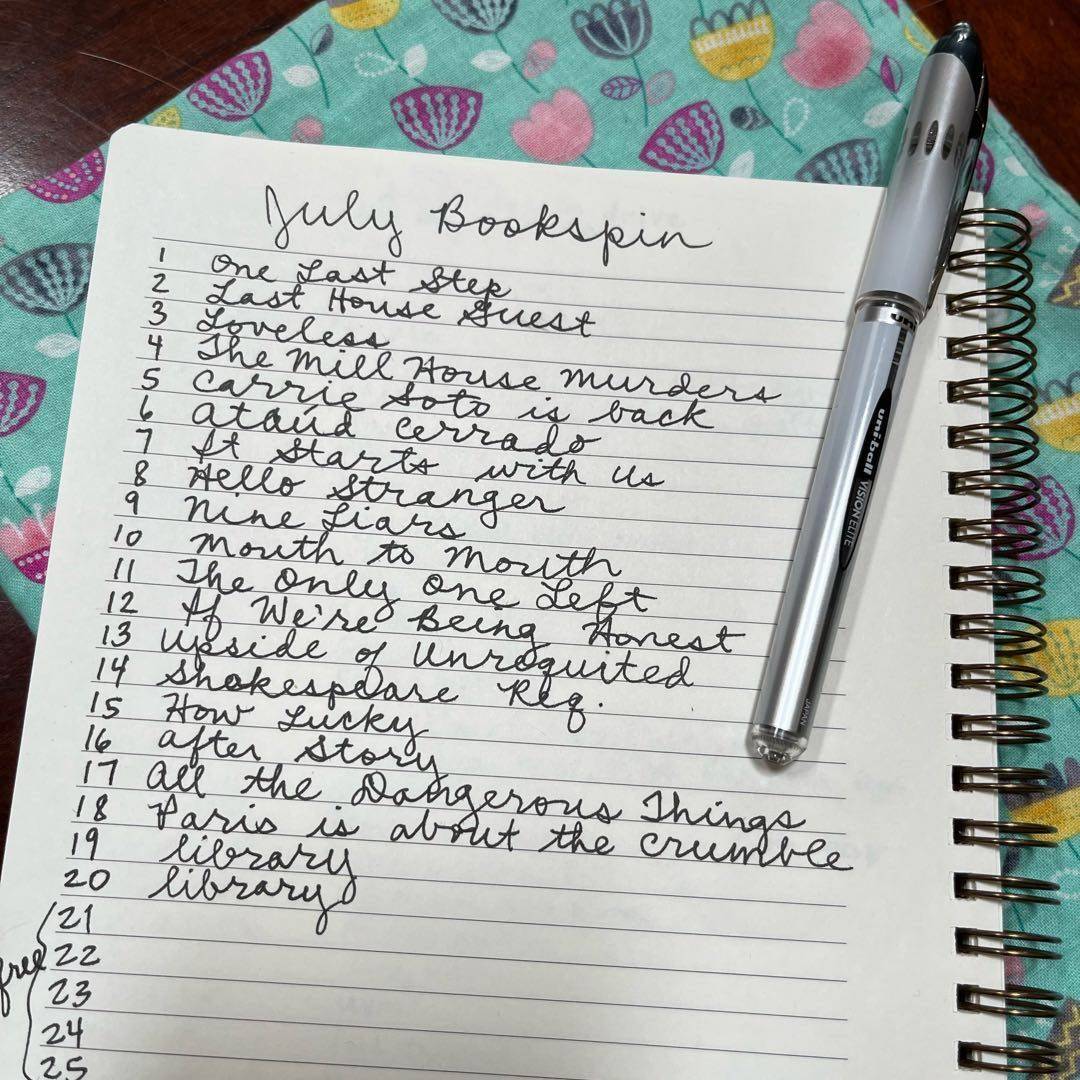 July Bookspin
1 One Last Step
2 Last House Guest
3 Loveless
4 The Mill House Murders
5 Carrie Soto is back
6 ataúd cerrado
7 It Starts with us
8 Hello Stranger
9 Nine Liars
10 Mouth to Mouth
11 The Only One Left
12 If We're Being Honest
13 Upside of Unrequited
14 Shakespeare Req.
15 How Lucky
16 after Story
17 all the Dangerous Things
18 Paris is about the crumble
19 library
20 library
21
22
free
23
24
25
uni
uni-ball VISION ELITE
JAPAN